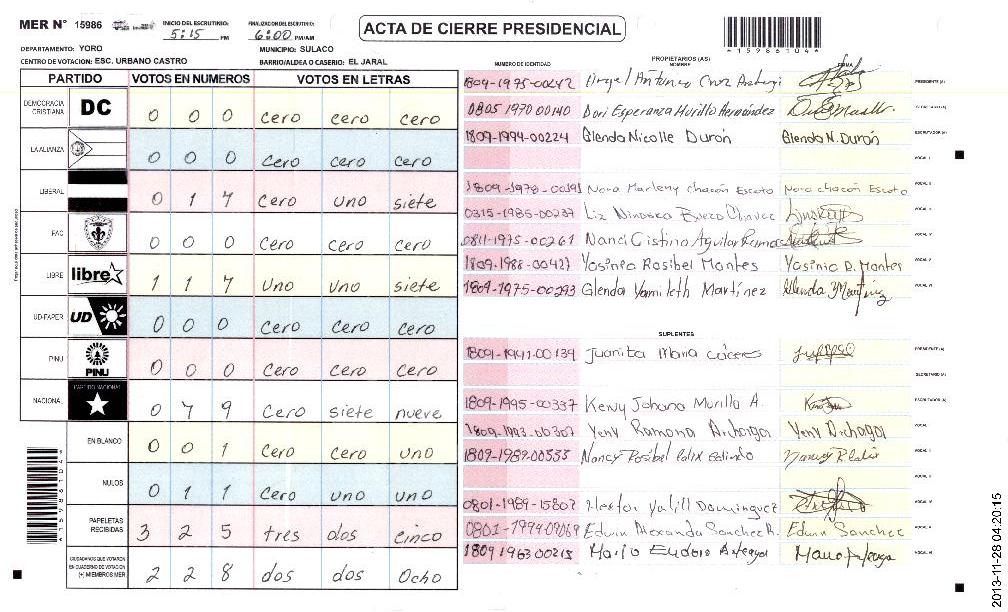 MER N° 15986
INICIO DEL ESCRUTINIO: 5:15 PM
FINALIZACION DEL ESCRUTINIO: 6:00 PM/AM
ACTA DE CIERRE PRESIDENCIAL
*15986104*
DEPARTAMENTO: YORO
MUNICIPIO: SULACO
CENTRO DE VOTACION: ESC. URBANO CASTRO
BARRIO/ALDEA O CASERIO: EL JARAL
PARTIDO VOTOS EN NUMEROS VOTOS EN LETRAS
DEMOCRACIA CRISTIANA DC 0 0 0 cero cero cero
LA ALIANZA 0 0 0 cero cero cero
LIBERAL 0 1 7 cero uno siete
PAC 0 0 0 cero cero cero
LIBRE libre 1 1 7 uno uno siete
UD-FAPER UD 0 0 0 cero cero cero
PINU PINU 0 0 0 cero cero cero
NACIONAL PARTIDO NACIONAL 0 7 9 cero siete nueve
EN BLANCO 0 0 1 cero cero uno
NULOS 0 1 1 cero uno uno
PAPELETAS RECIBIDAS 3 2 5 tres dos cinco
CIUDADANOS QUE VOTARON EN CUADERNO DE VOTACION (+) MIEMBROS MER 2 2 8 dos dos ocho
PROPIETARIOS (AS)
NUMERO DE IDENTIDAD NOMBRE FIRMA
1804-1975-00242 Angel Antonio Cruz PRESIDENTE (A)
0805 1970 00140 Dori Esperanza Murillo Hernández SECRETARIO (A)
1809-1994-00224 Glenda Nicolle Durón Glenda N. Durón ESCRUTADOR (A)
VOCAL I
1809-1978-00191 Nora Marleny chacón Escoto Nora chacón Escoto VOCAL II
0315-1985-00237 Liz VOCAL III
0811-1975-00261 Nanci Cistina Aguilar Ramos VOCAL IV
1809-1988-00427 Yosinia Rosibel Montes Yosinia R. Montes VOCAL V
1809-1975-00293 Glenda Yamileth Martínez Glenda Martínez VOCAL VI
SUPLENTES
1809-1991-00139 Juanita Maria cáceres PRESIDENTE (A)
SECRETARIO (A)
1809-1995-00337 Keivy Johana Murillo A. ESCRUTADOR (A)
1809-1993-00307 Yeny Ramona Archaga Yeny Archaga VOCAL I
1809-1989-00535 Nancy Rosibel VOCAL II
0801-1989-15802 Hector Dominguez
0801-1994-09069 Edwin Alexander Sanchez R. Edwin Sanchez
1809 1963 00215 Mario Eudoro Arteaga Mario Arteaga VOCAL VI
2013-11-28 04:20:15